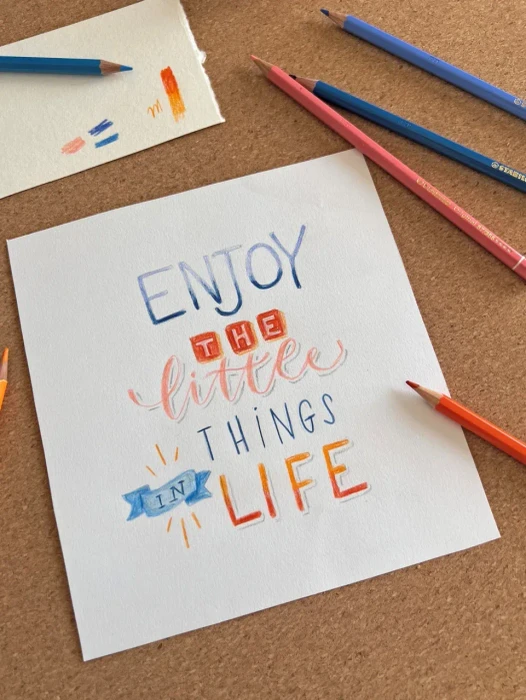 ENJOY
THE
little
THiNGS
IN LIFE